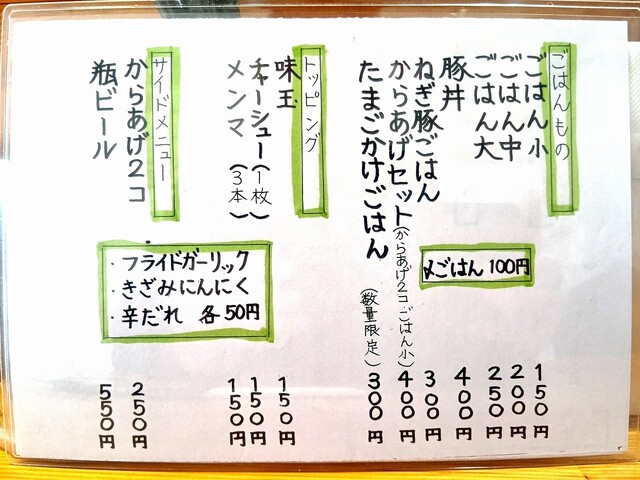 ごはんもの
ごはん小 150円
ごはん中 200円
ごはん大 250円
豚丼 400円
ねぎ豚ごはん 300円
からあげセット(からあげ2コ ごはん小) 400円
たまごかけごはん (数量限定) 300円
〆ごはん 100円
トッピング
味玉 150円
チャーシュー(1枚) 150円
メンマ(3本) 150円
サイドメニュー
からあげ2コ 250円
瓶ビール 550円
・フライドガーリック
・きざみにんにく
・辛だれ 各50円